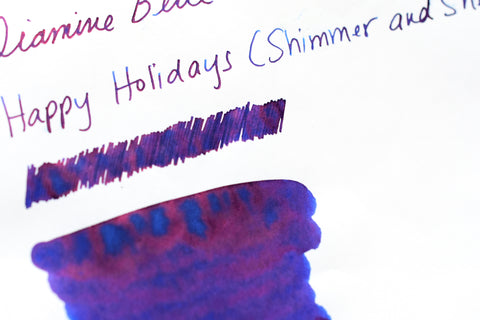 Diamine Blue
Happy Holidays (Shimmer and